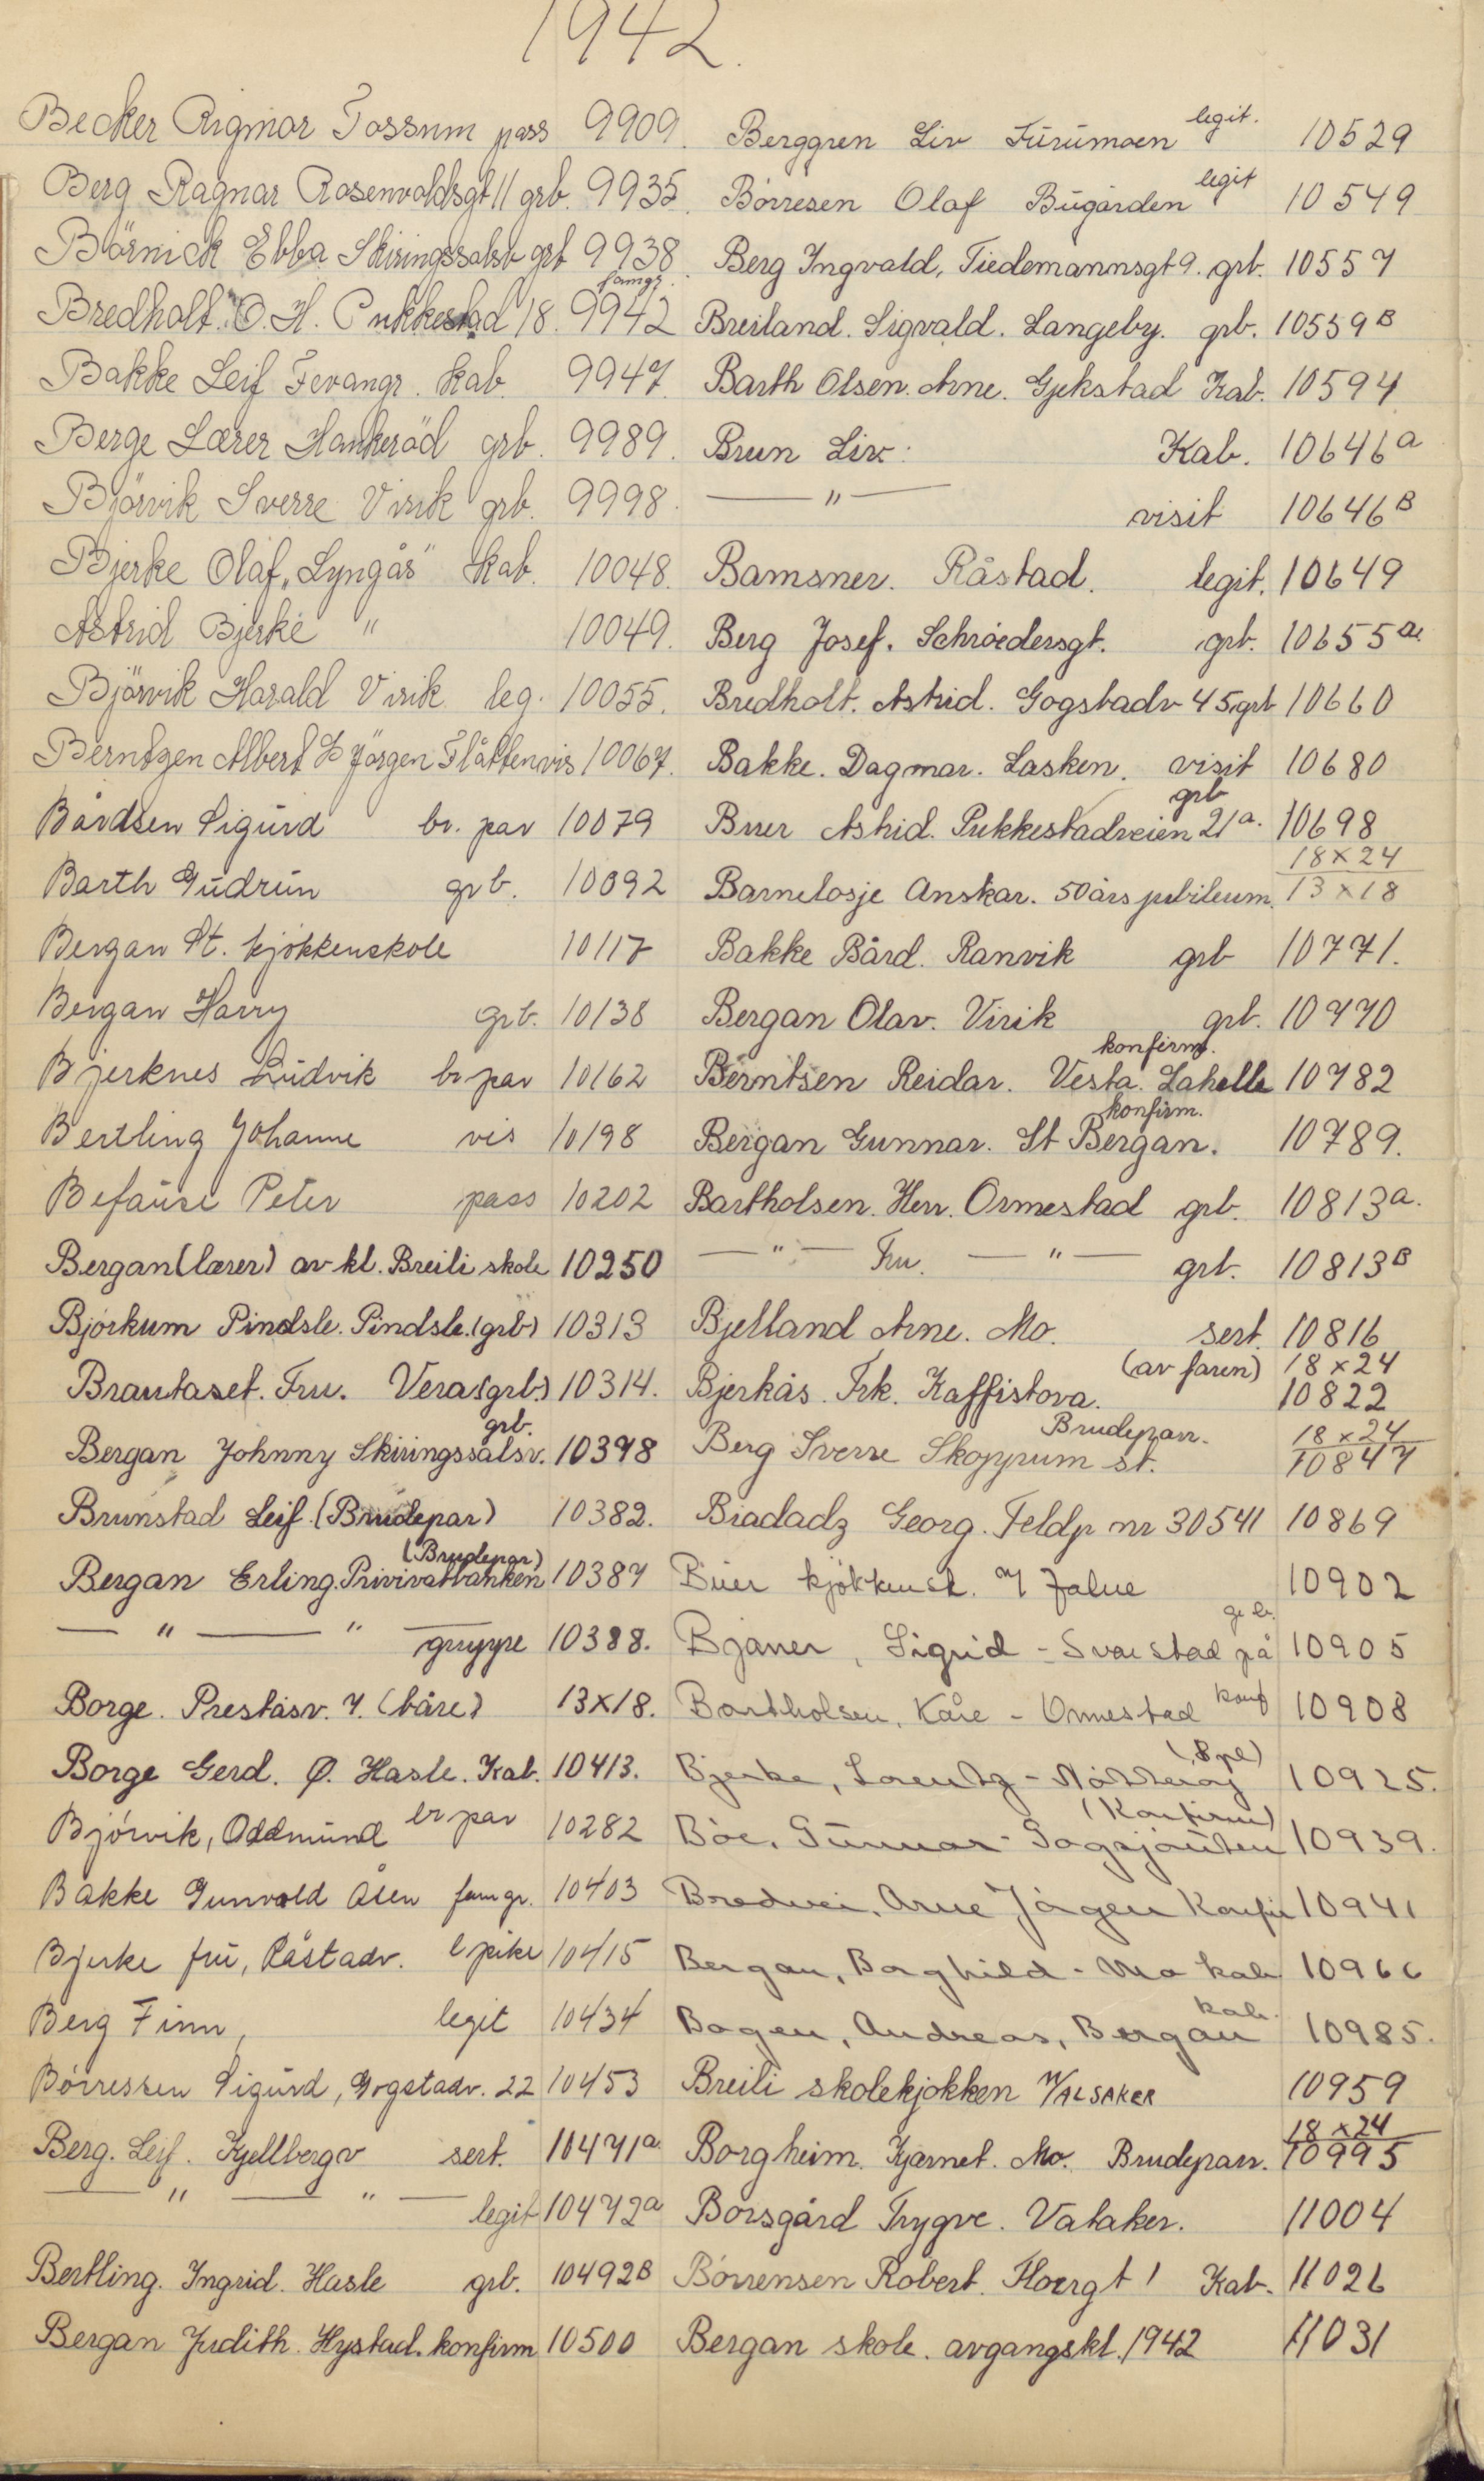 1942.
Becker Rigmor Fossum pass 9909.
Berg Ragnar Rosenvoldsgt 11 grb. 9935.
Börnick Ebba Skiringssalsv grb 9938.
Bredholt O. H. Pukkestad 18. famgr. 9942
Bakke Leif Fevangr. kab. 9947.
Berge Lærer Hankeröd grb. 9989.
Björvik Sverre Virik grb. 9998.
Bjerke Olaf „Lyngås" kab. 10048.
Astrid Bjerke " 10049.
Björvik Harald Virik leg. 10055.
Berntzen Albert & Jörgen Flåtten vis 10067.
Bårdsen Sigurd br. par 10079
Barth Gudrun grb. 10092
Bergan St. kjøkkenskole 10117
Bergan Harry grb. 10138
Bjerknes Ludvik br par 10162
Bertling Johanne vis 10198
Peter pass 10202
Bergan (lærer) av kl. Breili skole 10250
Bjórkum Pindsle. Pindsle. (grb) 10313
Brautaset. Fru. Vera (grb.) 10314.
Bergan Johnny Skiringssalsv. grb. 10378
Brunstad Leif. (Brudepar) 10382.
Bergan Erling. Privivatbanken (Brudepar) 10387
— " — " — gruppe 10388.
Borge. Preståsv. 7. (båre) 13x18.
Borge Gerd. Ø. Hasle. Kab. 10413.
Bjórvik, Oddmund br par 10282
Bakke Gunvald Åsen famgr. 10403
Bjerke fru, Råstadv. l pike 10415
Berg Finn, legit 10434
Börressen Sigurd, Gogstadv. 22 10453
Berg. Leif. Kjellbergv sert. 10471a.
— " — " — legit 10472a
Bertling. Ingrid. Hasle grb. 10492B
Bergan Judith. Hystad. konfirm 10500
Berggren Liv Furumoen legit. 10529
Börresen Olaf Bugården legit 10549
Berg Ingvald, Tiedemannsgt 9. grb. 10557
Breiland. Sigvald. Langeby. grb. 10559B
Barth Olsen. Arne. Gjekstad Kab. 10594
Brun Liv: Kab. 10646a
— " — visit 10646B
Bamsner. Råstad. legit. 10649
Berg Josef. Schróedersgt. grb. 10655a.
Bredholt. Astrid. Gogstadv 45. grb 10660
Bakke. Dagmar. Lasken. visit 10680
Bruer Astrid. Pukkestadveien 21a. grb 10698
Barnelosje Anskar. 50 års jubileum. 18x24 13x18
Bakke Bård. Ranvik grb 10771.
Bergan Olav. Virik grb. 10770
Berntsen Reidar. Vesta. Lahelle konfirm. 10782
Bergan Gunnar. St Bergan. konfirm. 10789.
Bartholsen. Herr. Ormestad grb. 10813a.
— " — Fru. — " — grb. 10813B
Bjelland Arne. Mo. sert. 10816
Bjerkås. Frk. Kaffistova. (av faren) 18x24 10822
Berg Sverre Skoppum st. Brudeparr. 18x24 10847
Biadadz Georg. Feldp nr 30541 10869
Buer kjökkensk. 10902
Bjaner, Sigrid - Svarstad på grb. 10905
Bartholsen, Kåre - Ormestad konf 10908
Bjerke, Lorentz - Nötteröy (8 pl) 10925.
Böe, Gunnar - (Konfirm) 10939.
Bredvei, Arne Jörgen Konfir 10941
Bergan, Borghild - Mo kab 10966
Bogen, Andreas, Bergan kab. 10985.
Breili skolekjøkken M/ALSAKER 10959
Borgheim. Kjærnet. Mo. Brudeparr. 18x24 10995
Borsgård Trygve. Vataker. 11004
Börrensen Robert. Floergt 1 Kab. 11026
Bergan skole. avgangskl. 1942 11031